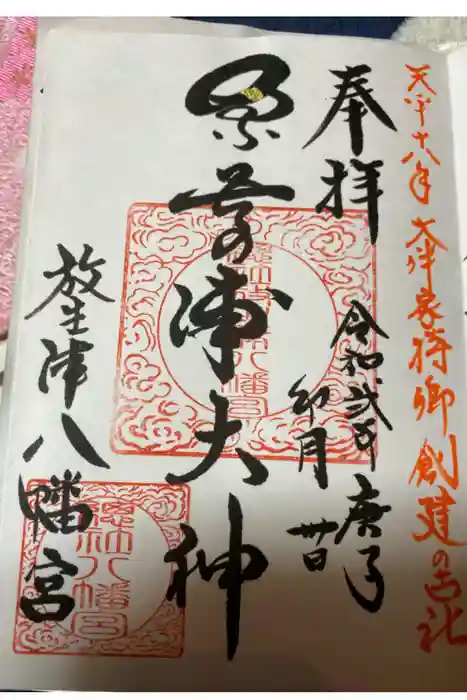 天平十八年 大伴家持卿 創建の古社
奉拝
令和弐年 庚子
卯月 日
奈呉の浦大神
放生津八幡宮